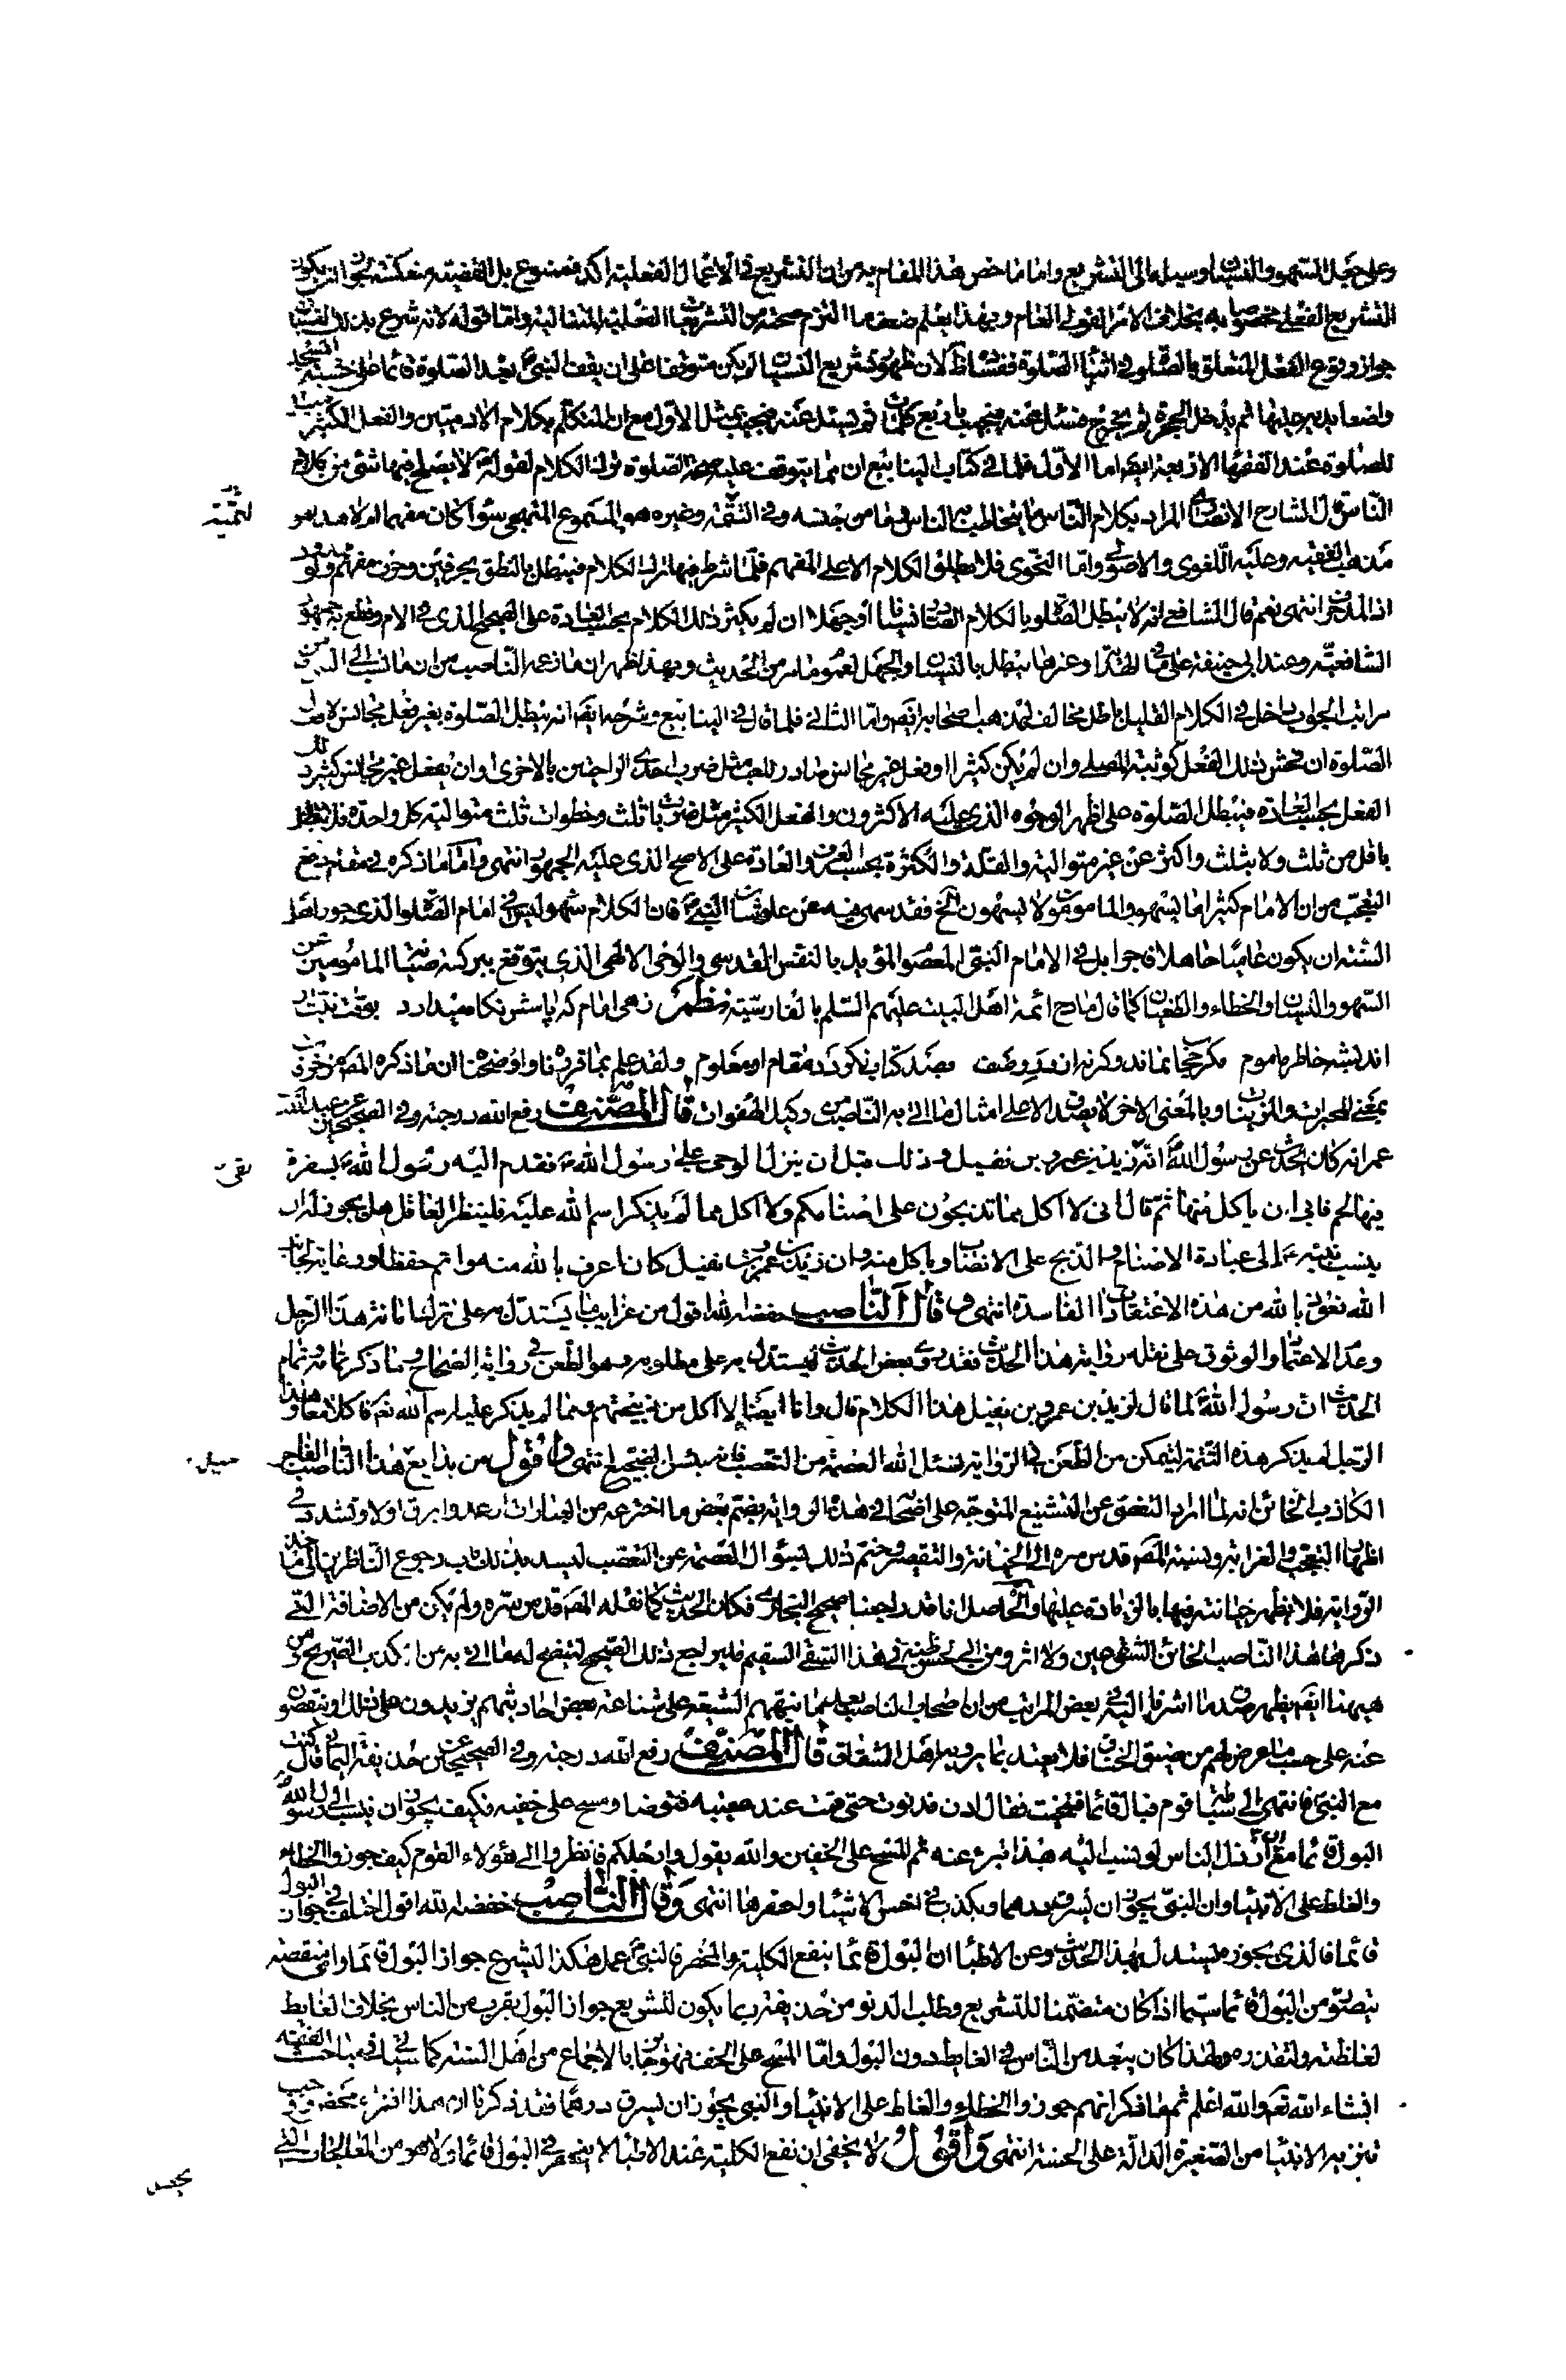 وعلى جعل السهو والنسيان وسيلة الى التشريع واما ما خص هذا المقام به من ان التشريع في الاعمال الفعلية اكد فممنوع بل القضية منعكسة لجواز ان يكون
التشريع الفعلي مخصوصا به بخلاف الامر القولي العام وبهذا يعلم ضعف ما التزم صحته من التشريعات الفعلية المتتالية واما قوله لانه شرع بذلك النسيان
جواز وقوع الفعل المتعلق بالصلوة في اثناء الصلوة ففساده لان ظهور تشريع النسيان لم يكن متوقفا على ان يقف النبي بعد الصلوة قائما على خشبة المسجد
واضعا يديه عليها ثم يدخل الحجرة ثم يخرج فيسئل عنه فيجيب ثم يسئل عنه فيجيب بمثل الاول مع ان التكلم بكلام الادميين والفعل الكثير مبطل
للصلوة عند الفقهاء الاربعة ايضا اما الاول فلما في كتاب الينابيع ان مما يتوقف عليه صحة الصلوة ترك الكلام لقوله لا يصلح فيها شئ من كلام
الناس قال الشارح الانصاري المراد بكلام الناس ما يتخاطب به الناس وما من جنسه وفي التتمة وغيره هو المسموع المتهجى سواء كان مفهما ام لا هذا هو
مذهب الفقيه وعليه اللغوى والاصولي واما النحوى فلا يطلق الكلام الا على المفهم فلما شرط فيها ترك الكلام فيبطل بالنطق بحرفين وحرف مفهم
انتهى نعم قال الشافعي انه لا يبطل الصلوة بالكلام ناسيا او جهلا ان لم يكثر ذلك الكلام بحسب العادة على الصحيح الذي في الام وقطع به جمهور
الشافعية وعند ابي حنيفة يبطل بالنسيان والجهل لعموم ما مر من الحديث وبهذا ظهر ان ما زعمه الناصب من ان ما نسب الى النبي من
مراتب الجواب داخل في الكلام القليل باطل مخالف لمذهب اصحابه ايضا واما الثاني فلما قال في الينابيع وشرحه ايضا انه يبطل الصلوة بغير فعل مجانس لافعال
الصلوة ان فحش ذلك الفعل كوثبة المصلي وان لم يكن كثيرا او فعل غير مجانس صادر للعب مثل ضرب احدى الراحتين بالاخرى او ان يفعل غير مجانس كثير ذلك
الفعل بحسب العادة فيبطل الصلوة على اظهر الوجوه الذي عليه الاكثرون والفعل الكثير مثل ضربات ثلث وخطوات ثلث متوالية كل واحدة فلا تبطل
باقل من ثلث ولا بثلث واكثر عن غير متوالية والقلة والكثرة بحسب العرف والعادة على الاصح الذي عليه الجمهور انتهى واما ما ذكره في دفع
التعجب من ان الامام كثيرا ما يسهو والمامومون لا يسهون الخ فقد سهى فيه عن علو شان النبي فان الكلام ليس في امام الصلوة الذي جوز اهل
السنة ان يكون عاميا جاهلا فاجرا بل في الامام النبي المعصوم المؤيد بالنفس القدسي والوحي الالهي الذي يتوقع ببركته ضبط المامومين عن
السهو والنسيان والخطاء والطغيان كما قال مادح ائمة اهل البيت عليهم السلم بالفارسية نظم زهى امام كه پاسش نگاه ميدارد بوقت نيت
انديشه خاطر ماموم مكر خجل نماند وكرنه ان كتاب نكردد مقام او معلوم ولقد علم بما قررناه واوضحناه ان ما ذكره المص مزخرف
بمعنى المجبرات والمزينات وبالمعنى الاخر لا يصدق الا على امثال ما اتى به الناصب من ركيك الهفوات قال المصنف رفع الله درجته وفي الصحيحين عن عبد الله بن
عمر انه كان يحدث عن رسول الله انه زيد بن عمرو بن نفيل وذلك قبل ان ينزل الوحى على رسول الله فقدم اليه رسول الله سفرة
فيها لحم فابى ان ياكل منها ثم قال انى لا اكل مما تذبحون على اصنامكم ولا اكل مما لم يذكر اسم الله عليه فلينظر العاقل هل يجوز له ان
ينسب نبيه الى عبادة الاصنام والذبح على الانصاب وياكل منه وان زيد بن عمرو بن نفيل كان اعرف بالله منه واتم حفظا ورعاية لجانب
الله نعوذ بالله من هذه الاعتقادات الفاسدة انتهى قال الناصب خفضه الله اقول من غرايب ما يستدل به على ترك امانة هذا الرجل
وعدم الاعتماد والوثوق على نقله رواية هذا الحديث فقد روى بعض الحديث ليستدل به على مطلوبه وهو الطعن في رواية الصحاح وما ذكر تمامه وتمام
الحديث ان رسول الله لما قال لزيد بن عمرو بن نفيل هذا الكلام قال وانا ايضا لا اكل من ذبيحتهم ومما لم يذكر عليه اسم الله تعم فاكلا معا وهذا
الرجل لم يذكر هذه التتمة ليتمكن من الطعن في الرواية نسئل الله العصمة من التعصب فانه بئس الضجيع انتهى واقول من بدايع هذا الناصب الفاجر
الكاذب الخائن انه لما اراد التفصى عن التشنيع المتوجه على اصحابه في هذه الرواية بضم بعض ما اخترعه من العبارات ارعد وابرق اولا وتشدد في
اظهار التعجب والغرابة ونسبة المص قدس سره الى الخيانة والتقصير وختم ذلك بسؤال العصمة عن التعصب ليسد بذلك باب رجوع الناظرين الى ماخذ
الرواية فلا يظهر خيانته فيها بالزيادة عليها والحاصل انا قد راجعنا صحيح البخارى فكان الحديث كما نقله المص قدس سره ولم يكن من الاضافة التي
ذكرها هذا الناصب الخائن الشقي عين ولا اثر ومن لم يحسن ظنه في هذا الشقي السقيم فليراجع ذلك الصحيح ليتضح له ما اتى به من الكذب الصريح ومن
هيهنا ايضا يظهر صدق ما اشرنا اليه في بعض المراتب من ان اصحاب الناصب بعلم ما نبههم الشيعة على شناعة بعض احاديثهم يزيدون على ذلك او ينقصون
عنه على حسب ما عرض لهم من ضيق الخناق فلا يعتد بما يرويه اهل الشقاق قال المصنف رفع الله درجته وفي الصحيحين عن حذيفة بن اليمان قال كنت
مع النبي فانتهى الى سباطة قوم فبال قائما فتنحيت فقال ادن فدنوت حتى قمت عند عقبيه فتوضا ومسح على خفيه فكيف يجوز ان ينسب الى رسول الله
البول قائما مع ان ارذل الناس لو نسب اليه هذا تبرء عنه ثم المسح على الخفين والله يقول وارجلكم فانظروا الى هؤلاء القوم كيف جوزوا الخطاء
والغلط على الانبياء وان النبي يجوز ان يسرق درهما ويكذب في اخس الاشياء واحقرها انتهى وقال الناصب خفضه الله اقول اختلف في جواز البول
قائما فالذي يجوز يستدل بهذا الحديث وعن الاطباء ان البول قائما ينفع الكلية والنبي عمل هكذا لتشريع جواز البول قائما واى منقصة
يتصور من البول قائما سيما اذا كان متضمنا للتشريع وطلب الدنو من حذيفة ربما يكون لتشريع جواز البول بقرب من الناس بخلاف الغايط
لغلظته ولهذا كان يبعد من الناس في الغايط دون البول واما المسح على الخف فهو جايز بالاجماع من اهل السنة كما سياتي في مباحث الفقه
انشاء الله تعم والله اعلم ثم ما ذكر انهم جوزوا الخطاء والغلط على الانبياء والنبي يجوز ان يسرق درهما فقد ذكرنا ان هذا افتراء محض
تنزيه الانبياء من الصغيرة الدالة على الخسة انتهى واقول لا يخفى ان نفع الكلية عند الاطباء لا ينحصر في البول قائما ولا هو من المعالجات التي